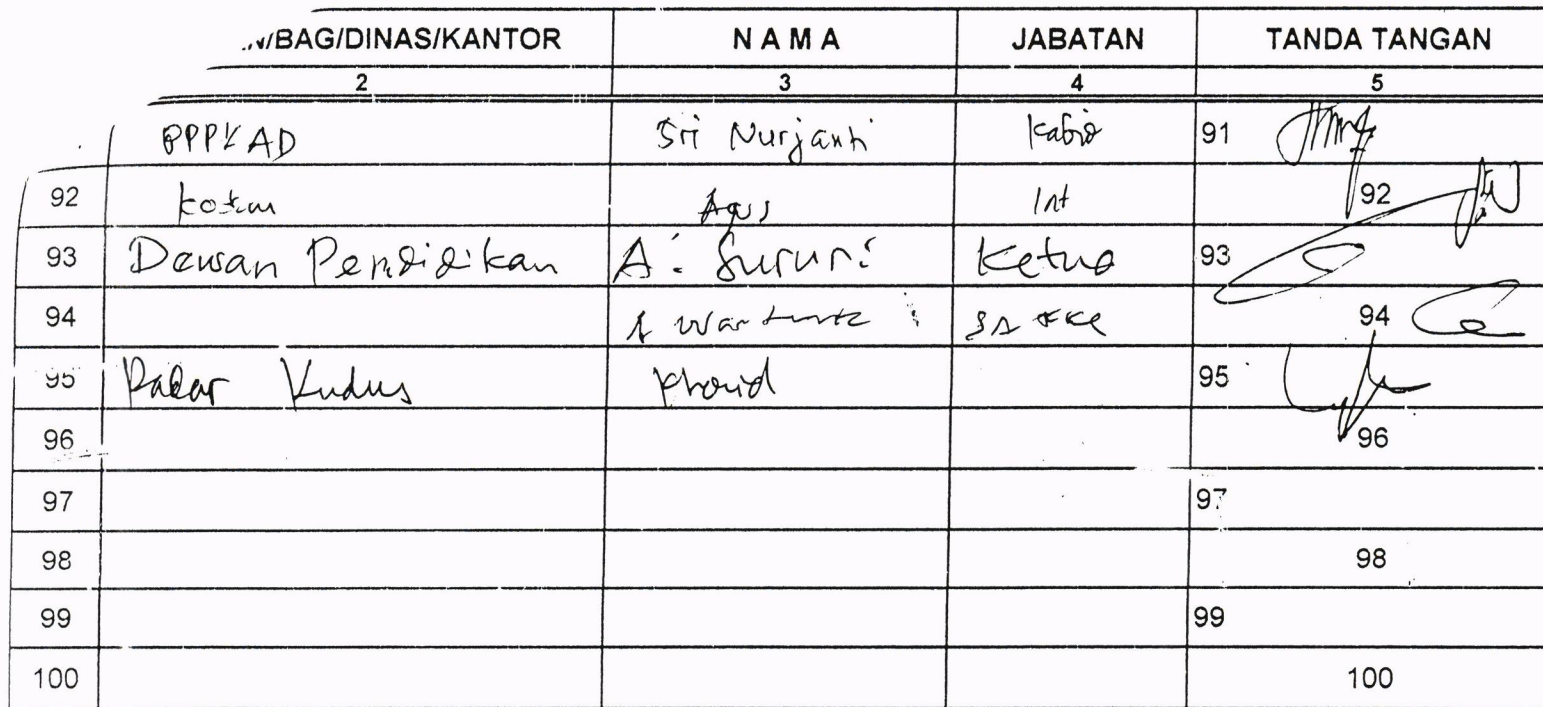 /BAG/DINAS/KANTOR NAMA JABATAN TANDA TANGAN
2 3 4 5
PPPKAD Sri Nurjanti Kabid 91
92 Agus 92
93 Dewan Pendidikan A. Sururi Ketua 93
94 94
95 Radar Kudus Khorid 95
96 96
97 97
98 98
99 99
100 100